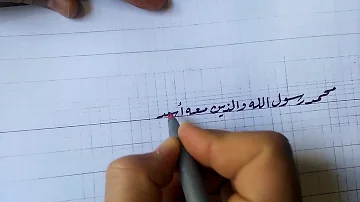 محمد رسول الله والذين معه